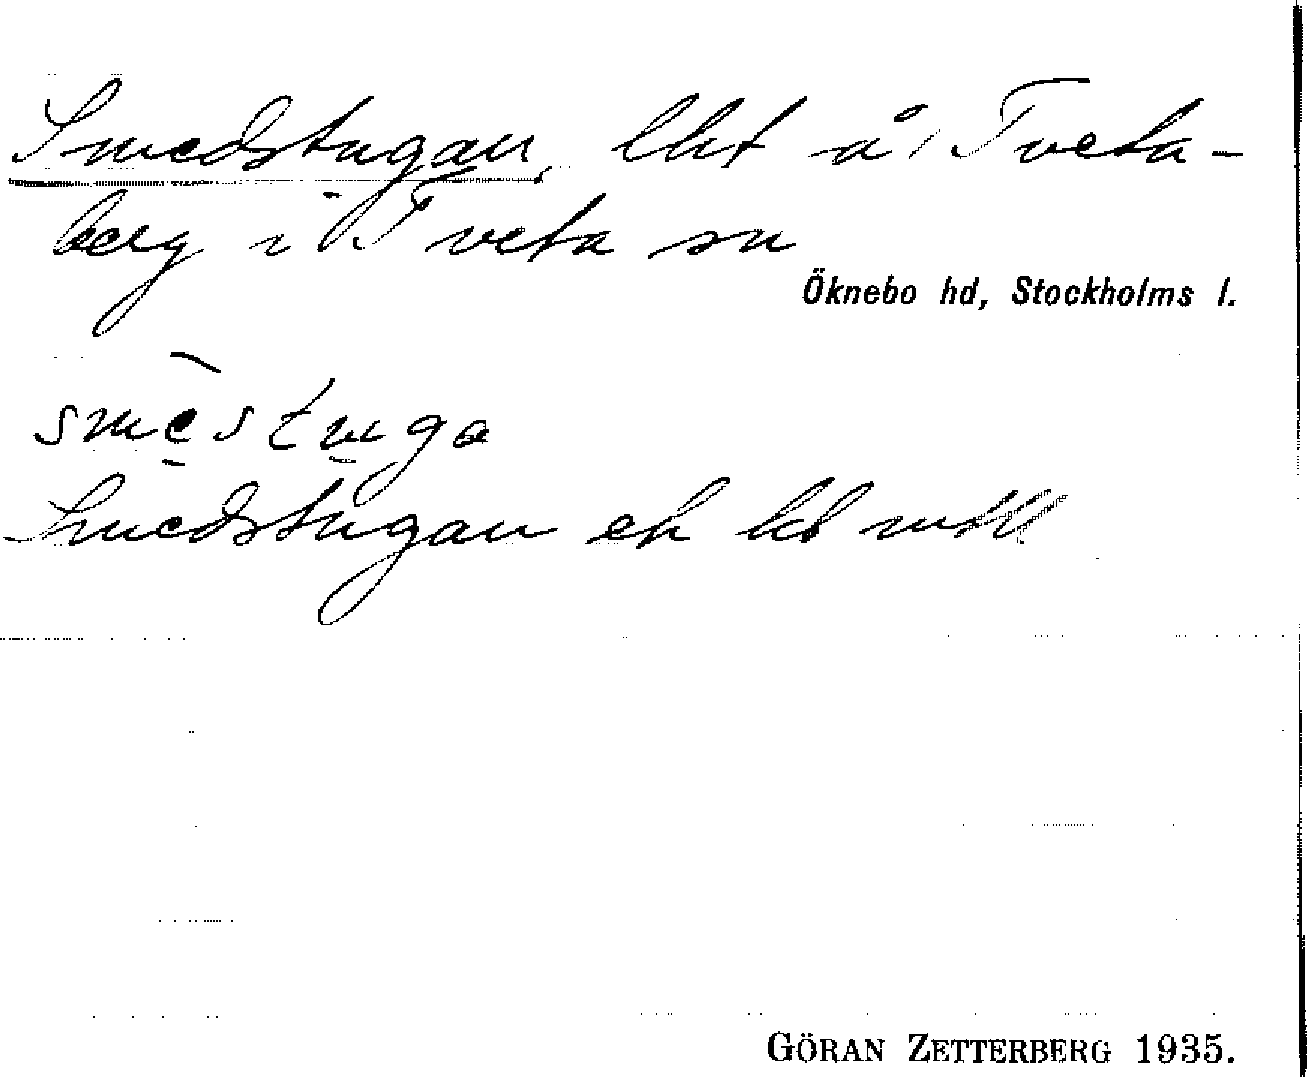 Smedstugan, lht å Tveta-
berg i Tveta sn
Öknebo hd, Stockholms l.
smèstuga
Smedstugan ek bl
GÖRAN ZETTERBERG 1935.